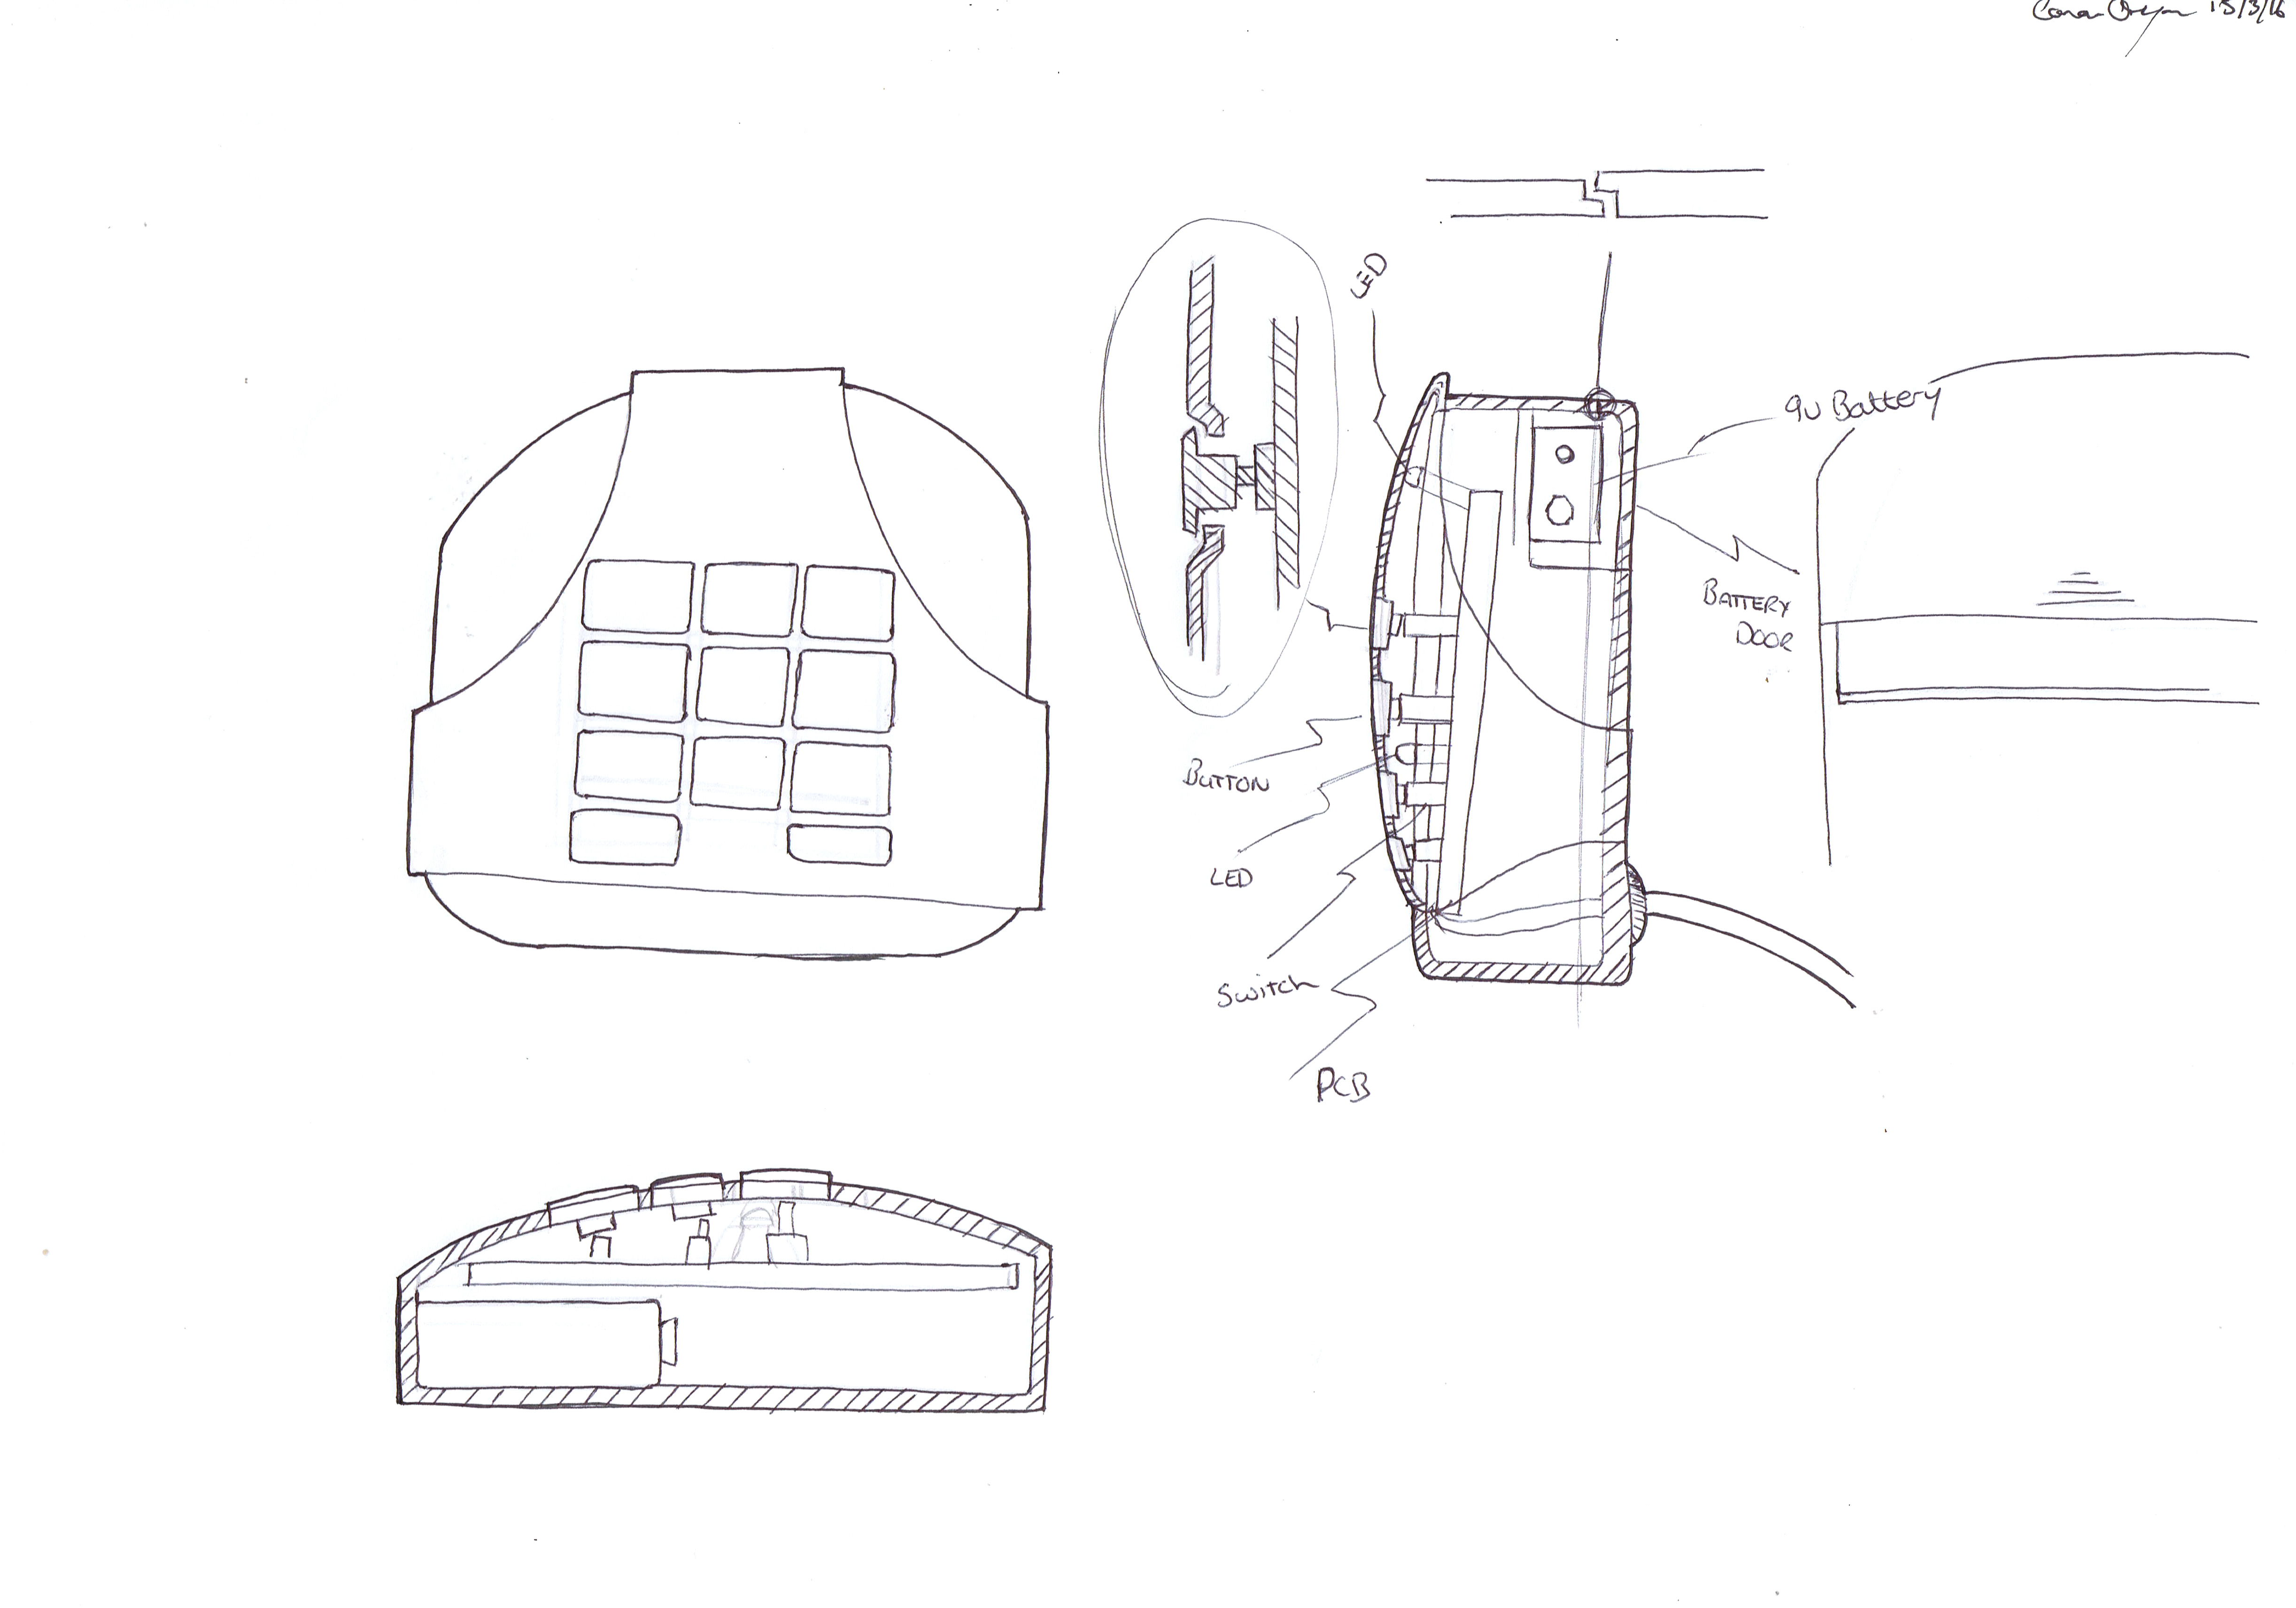 15/3/16
LED
9v Battery
BATTERY
DOOR
BUTTON
LED
Switch
PCB